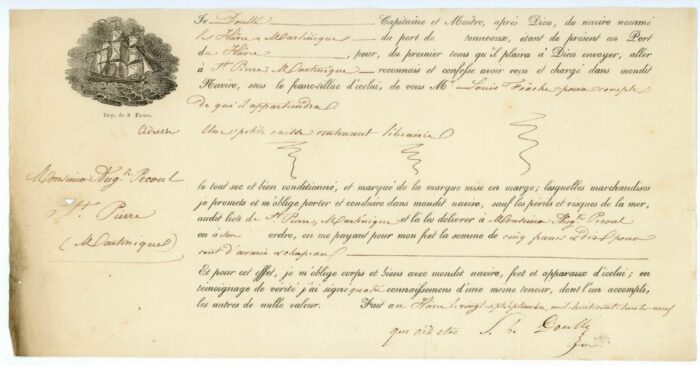 Je Doullé Capitaine et Maître, après Dieu, du navire nommé
le Hâvre & Martinique du port de tonneaux, étant de présent au Port
du Hâvre, pour, du premier tems qu'il plaira à Dieu envoyer, aller
à St Pierre, Martinique reconnais et confesse avoir reçu et chargé dans mondit
Navire, sous le franc-tillac d'icelui, de vous Mr Louis pour compte
de qui il appartiendra.
Imp. de S. Faure.
Adresse
Une petite caisse contenant librairie
Monsieur Augte Pecoul
St Pierre
(Martinique)
le tout sec et bien conditionné, et marqué de la marque mise en marge; lesquelles marchandises
je promets et m'oblige porter et conduire dans mondit navire, sauf les périls et risques de la mer,
audit lieu de St Pierre, Martinique et là les délivrer à Monsieur Augte Pecoul
ou à son ordre, en me payant pour mon fret la somme de cinq francs & dix pour
cent d'avarie & chapeau
Et pour cet effet, je m'oblige corps et biens avec mondit navire, fret et apparaux d'icelui; en
témoignage de vérité j'ai signé quatre connaissemens d'une même teneur, dont l'un accompli,
les autres de nulle valeur. Fait au Hâvre le vingt sept septembre mil huit cent trente neuf
que dit être Doullé